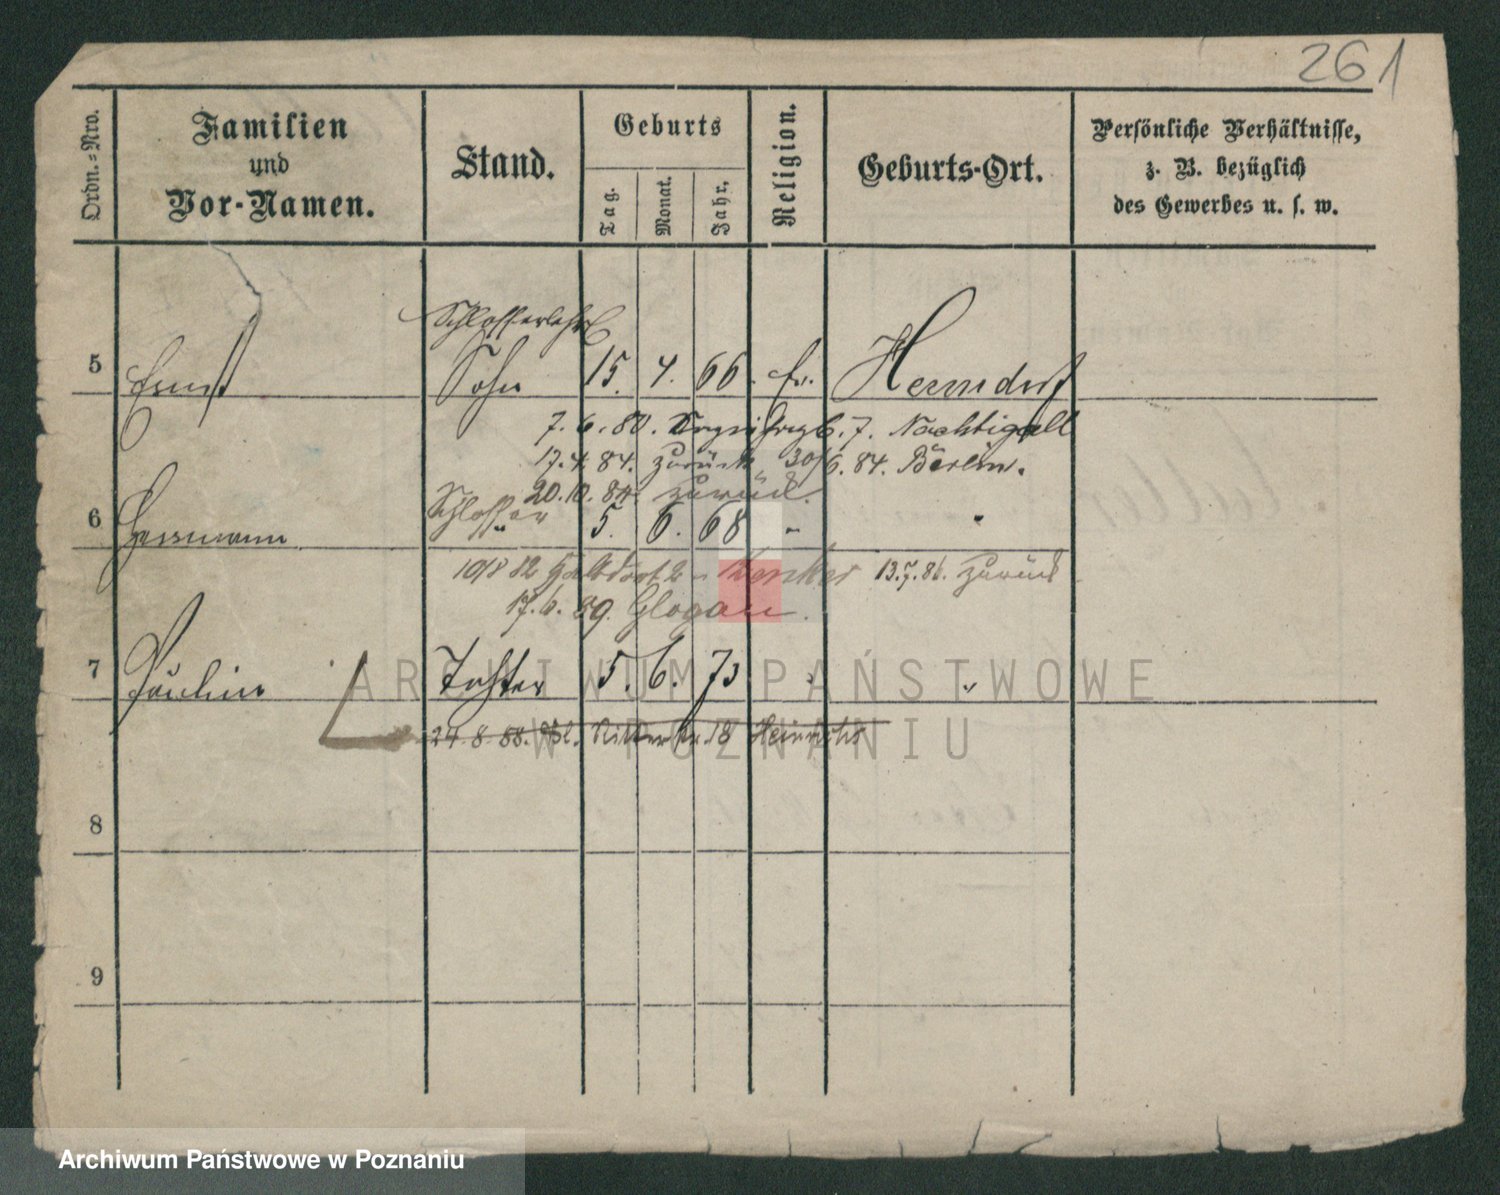 261
Ordn.=Nro.
Familien
und
Vor-Namen.
Stand.
Geburts
Tag.
Monat.
Jahr.
Religion.
Geburts-Ort.
Persönliche Verhältnisse,
z. B. bezüglich
des Gewerbes u. s. w.
Schlosserlehrl
5 Ernst Sohn 15. 4. 66. ev. Herrndorf
7. 6. 80. 7. Nachtigall
17. 4. 84. zurück 30/6. 84. Berlin.
20. 10. 84. zurück.
Schlosser
6 Herrmann " 5. 6. 68 " "
10/8 82 13. 7. 86. zurück
17. 6. 89. Glogau.
7 Paulin Tochter 5. 6. 73 " "
24. 8. 88. Ritterstr. 18 Heinrichs
8
9
ARCHIWUM PAŃSTWOWE
W POZNANIU
Archiwum Państwowe w Poznaniu